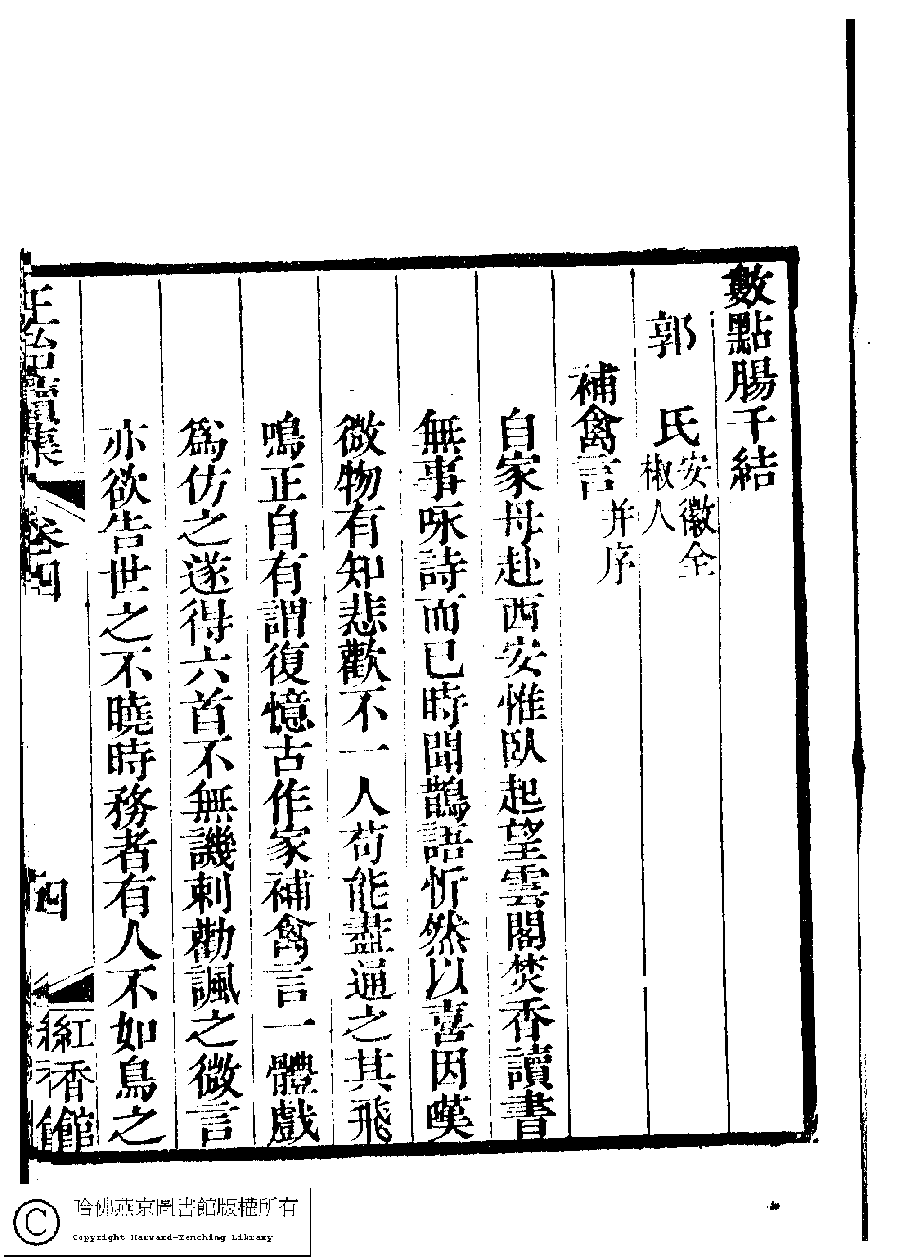 數點腸千結
郭　氏安徽全椒人
補禽言并序
自家母赴西安惟臥起望雲閣焚香讀書
無事咏詩而已時聞鵲語忻然以喜因嘆
微物有知悲歡不一人苟能盡通之其飛
鳴正自有謂復憶古作家補禽言一體戲
爲仿之遂得六首不無譏刺勸諷之微言
亦欲告世之不曉時務者有人不如鳥之
正始續集　卷四　四　紅香館
哈佛燕京圖書館版權所有
Copyright Harvard-Yenching Library